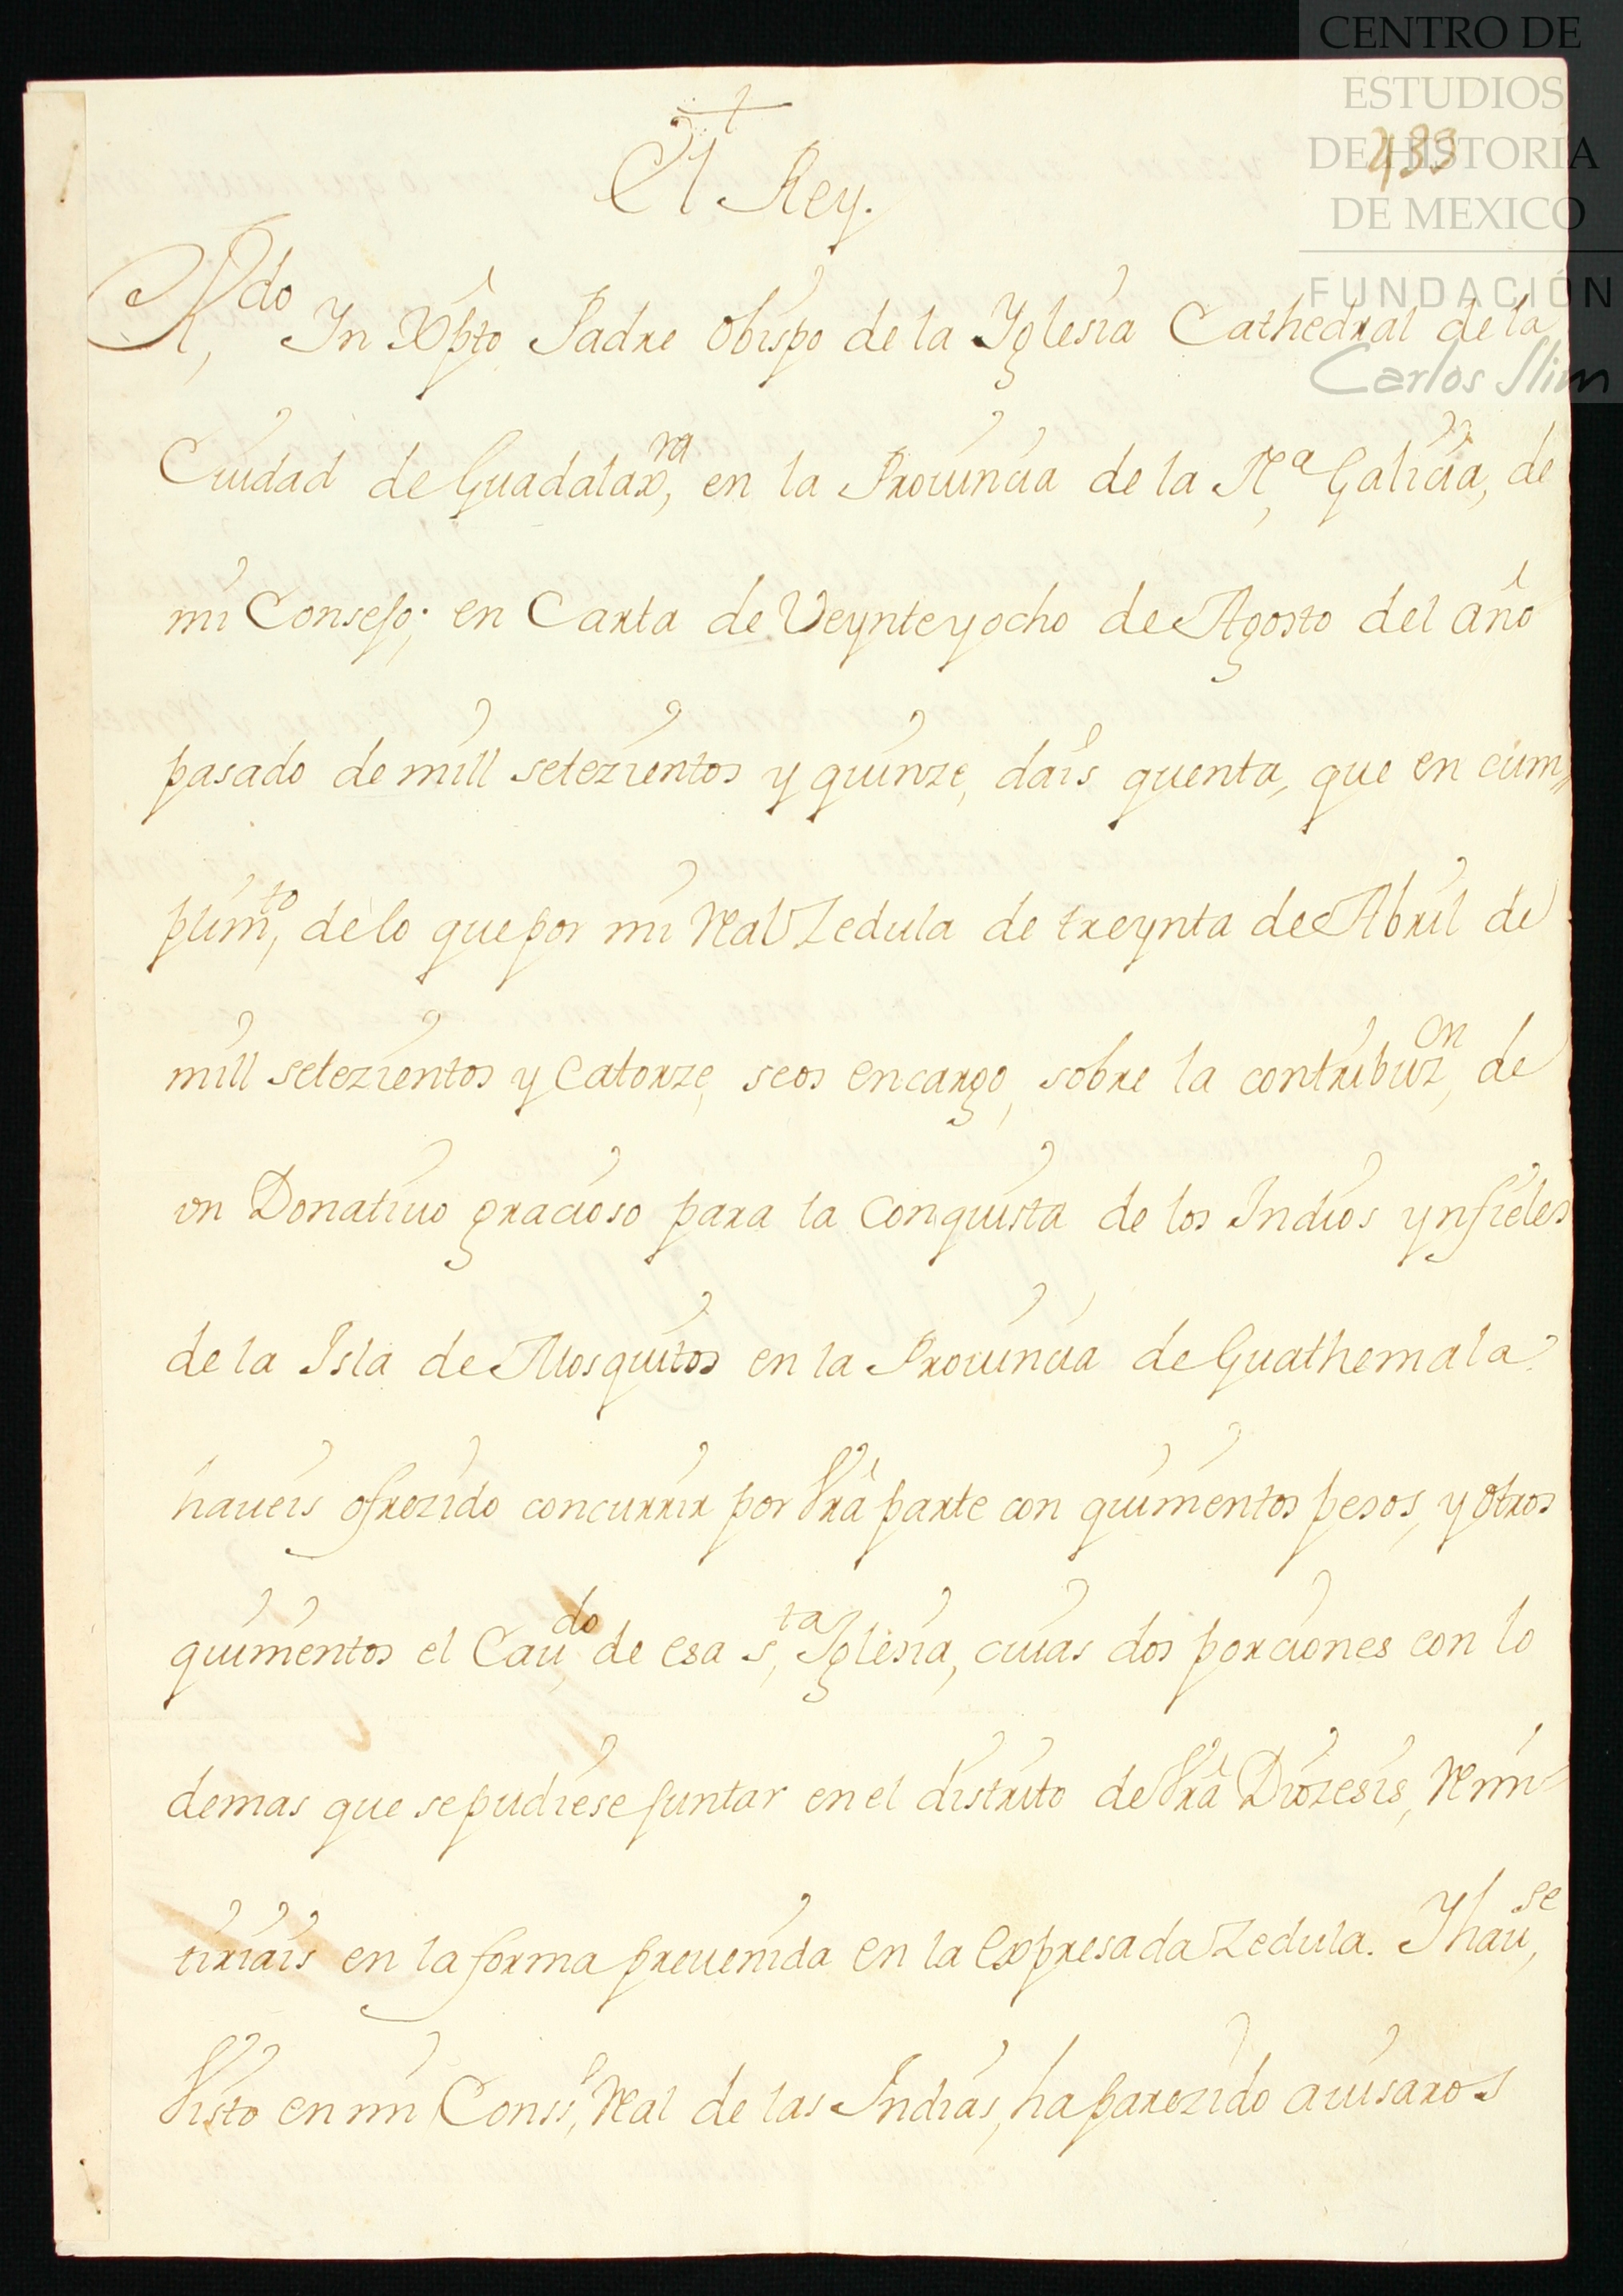 CENTRO DE
ESTUDIOS
DE HISTORIA
DE MEXICO
FUNDACIÓN
Carlos Slim
El Rey.
R,do In Xpto Padre Obispo de la Yglesia Cathedral de la
Ciudad de Guadalax,ra en la Prouincia de la N,a Galicia, de
mi Consejo; en Carta de Veynte y ocho de Agosto del año
pasado de mill setezientos y quinze, dais quenta, que en cum//
plim,to de lo que por mi Real Zedula de treynta de Abril de
mill setezientos y Catorze, se os encargo, sobre la contribuz,on de
vn Donatiuo gracioso para la Conquista de los Indios ynfieles
de la Isla de Mosquitos en la Prouincia de Guathemala.
haueis ofrezido concurrir por Vra parte con quinientos pesos, y otros
quinientos el Cau,do de esa s,ta Iglesia, cuias dos porciones con lo
demas que se pudiese juntar en el distrito de Vra Diozesis, Remi
tiriais en la forma preuenida en la expresada Zedula. Y hau,se
Visto en mi Conss,o Real de las Indias, ha parezido auisaros